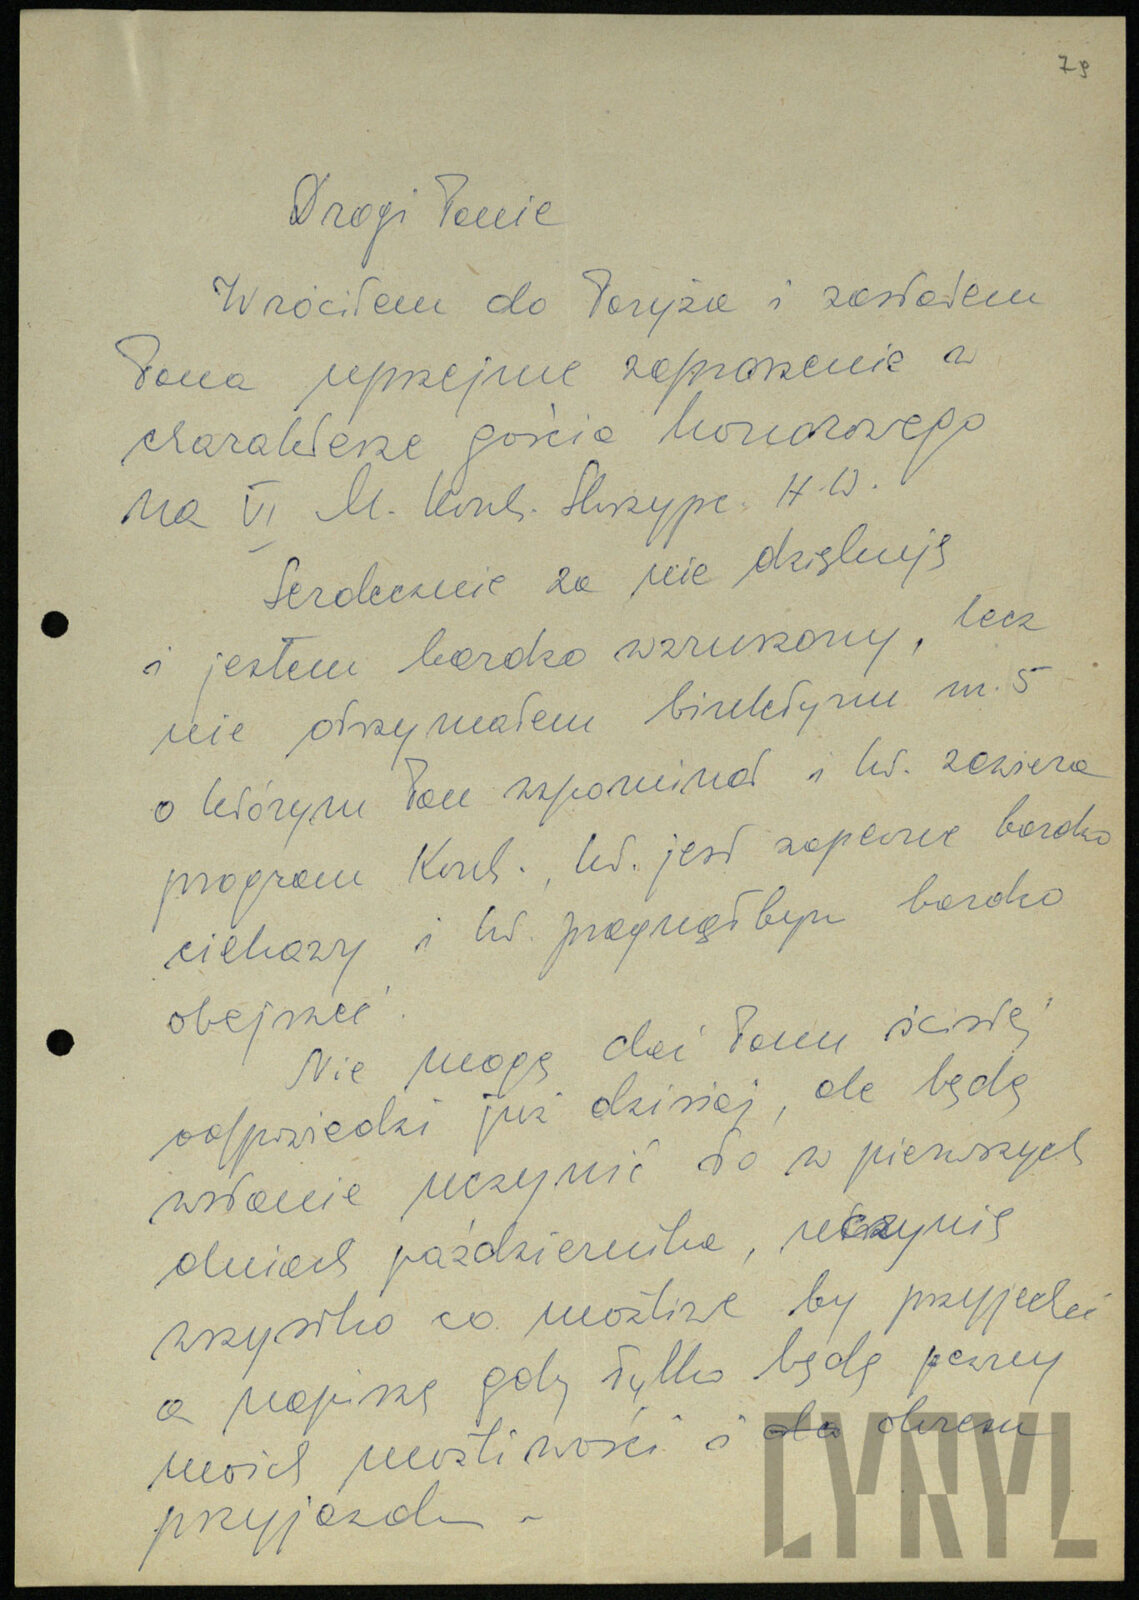 79
Drogi Panie
Wróciłem do Paryża i zastałem
Pana uprzejme zaproszenie w
charakterze gościa honorowego
na VI M. Konk. Skrzypc. H.W.
Serdecznie za nie dziękuję
i jestem bardzo wzruszony, lecz
nie otrzymałem biuletynu nr. 5
o którym Pan wspominał i kt. zawiera
program Konk., kt. jest zapewne bardzo
ciekawy i kt. pragnąłbym bardzo
obejrzeć.
Nie mogę dać Panu ścisłej
odpowiedzi już dzisiaj, ale będę
wstanie uczynić to w pierwszych
dniach października, uczynię
wszystko co możliwe by przyjechać
a napiszę gdy tylko będę pewny
moich możliwości i okresu
przyjazdu -
LYRYL